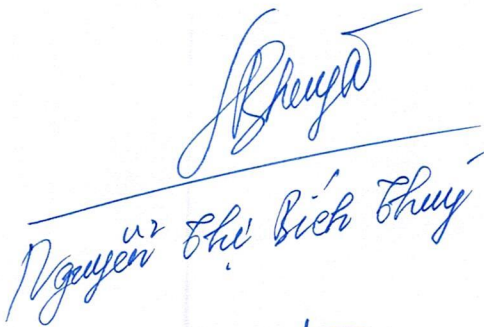 Nguyễn Thị Bích Thuý